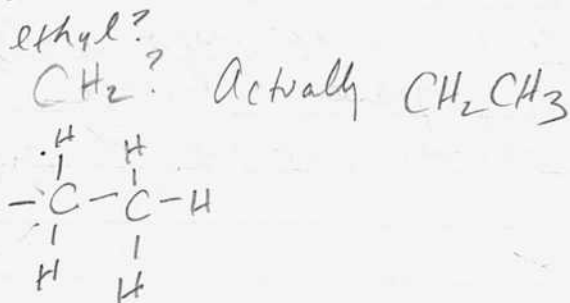 ethyl?
CH₂? Actually CH₂CH₃
H H
-C-C-H
H H